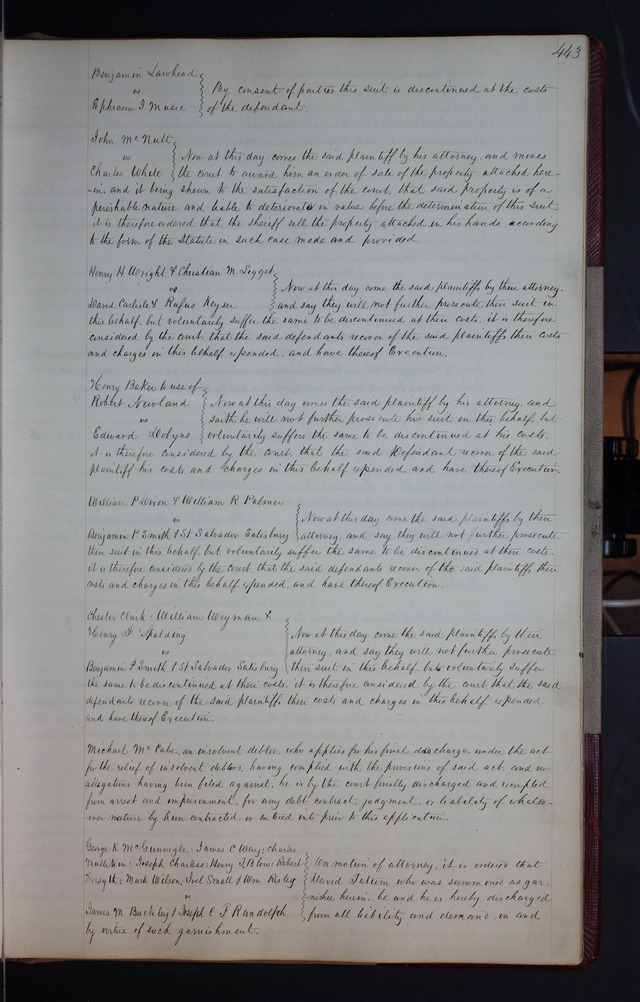 443
Benjamin Lawhead
vs
Ephraim J Music
By consent of parties this suit is discontinued at the costs
of the defendant
John McNult
vs
Charles White
Now at this day comes the said plaintiff by his attorney, and moves
the court to award him an order of sale of the property attached here-
in, and it being shewn to the satisfaction of the court, that said property is of a
perishable nature, and liable to deteriorate in value before the determination of this suit
it is therefore ordered that the sheriff sell the property attached in his hands, according
to the form of the Statute in such case made and provided
Henry H Wright & Christian M
vs
David Carlisle & Rufus Keyser
Now at this day come the said plaintiffs by their attorney,
and say they will not further prosecute their suit in
this behalf, but voluntarily suffer the same to be discontinued at their costs, it is therefore
considered by the court, that the said defendants recover of the said plaintiffs their costs
and charges in this behalf expended, and have thereof Execution.
Henry Baker to use of
Robert Newland
vs
Edward Dobyns
Now at this day comes the said plaintiff by his attorney, and
saith he will not further prosecute his suit in this behalf, but
voluntarily suffers the same to be discontinued at his costs,
it is therefore considered by the court, that the said Defendant recover of the said
plaintiff his costs and charges in this behalf expended and have thereof Execution.
William P Dixon & William R Palmer
vs
Benjamin F Smith & St Salvador Salisbury
Now at this day come the said plaintiffs by their
attorney, and say they will not further prosecute
their suit in this behalf, but voluntarily suffer the same to be discontinued at their costs.
it is therefore considered by the court that the said defendants recover of the said plaintiffs their
costs and charges in this behalf expended, and have thereof Execution.
Chester Clark: William Weyman &
Henry F Spalding
vs
Benjamin F Smith & St Salvador Salisbury
Now at this day come the said plaintiffs by their
attorney, and say they will not further prosecute
their suit in this behalf, but voluntarily suffer
the same to be discontinued at their costs, it is therefore considered, by the court that the said
defendants recover of the said plaintiffs their costs and charges in this behalf expended
and have thereof Execution.
Michael McCabe, an insolvent debtor, who applies for his final discharge, under the act
for the relief of insolvent debtors, having complied with the provisions of said act, and no
allegations having been filed against, he is by the court finally discharged and exempted
from arrest and imprisonment, for any debt, contract, judgment, or liability of whatso-
ever nature by him contracted or entered into prior to this application.
George K McGunnegle: James C Way: Charles
Mullikin: Joseph Charless: Henry T Blow: Robert
Forsyth: Mark Wilson, Joel Small & Wm Risley
vs
James M Buckley & Joseph C F Randolph
On motion of attorney, it is ordered that
David Tatum who was summoned as gar-
nishee herein, be and he is hereby discharged
from all liability and demand, in and
by virtue of such garnishment.